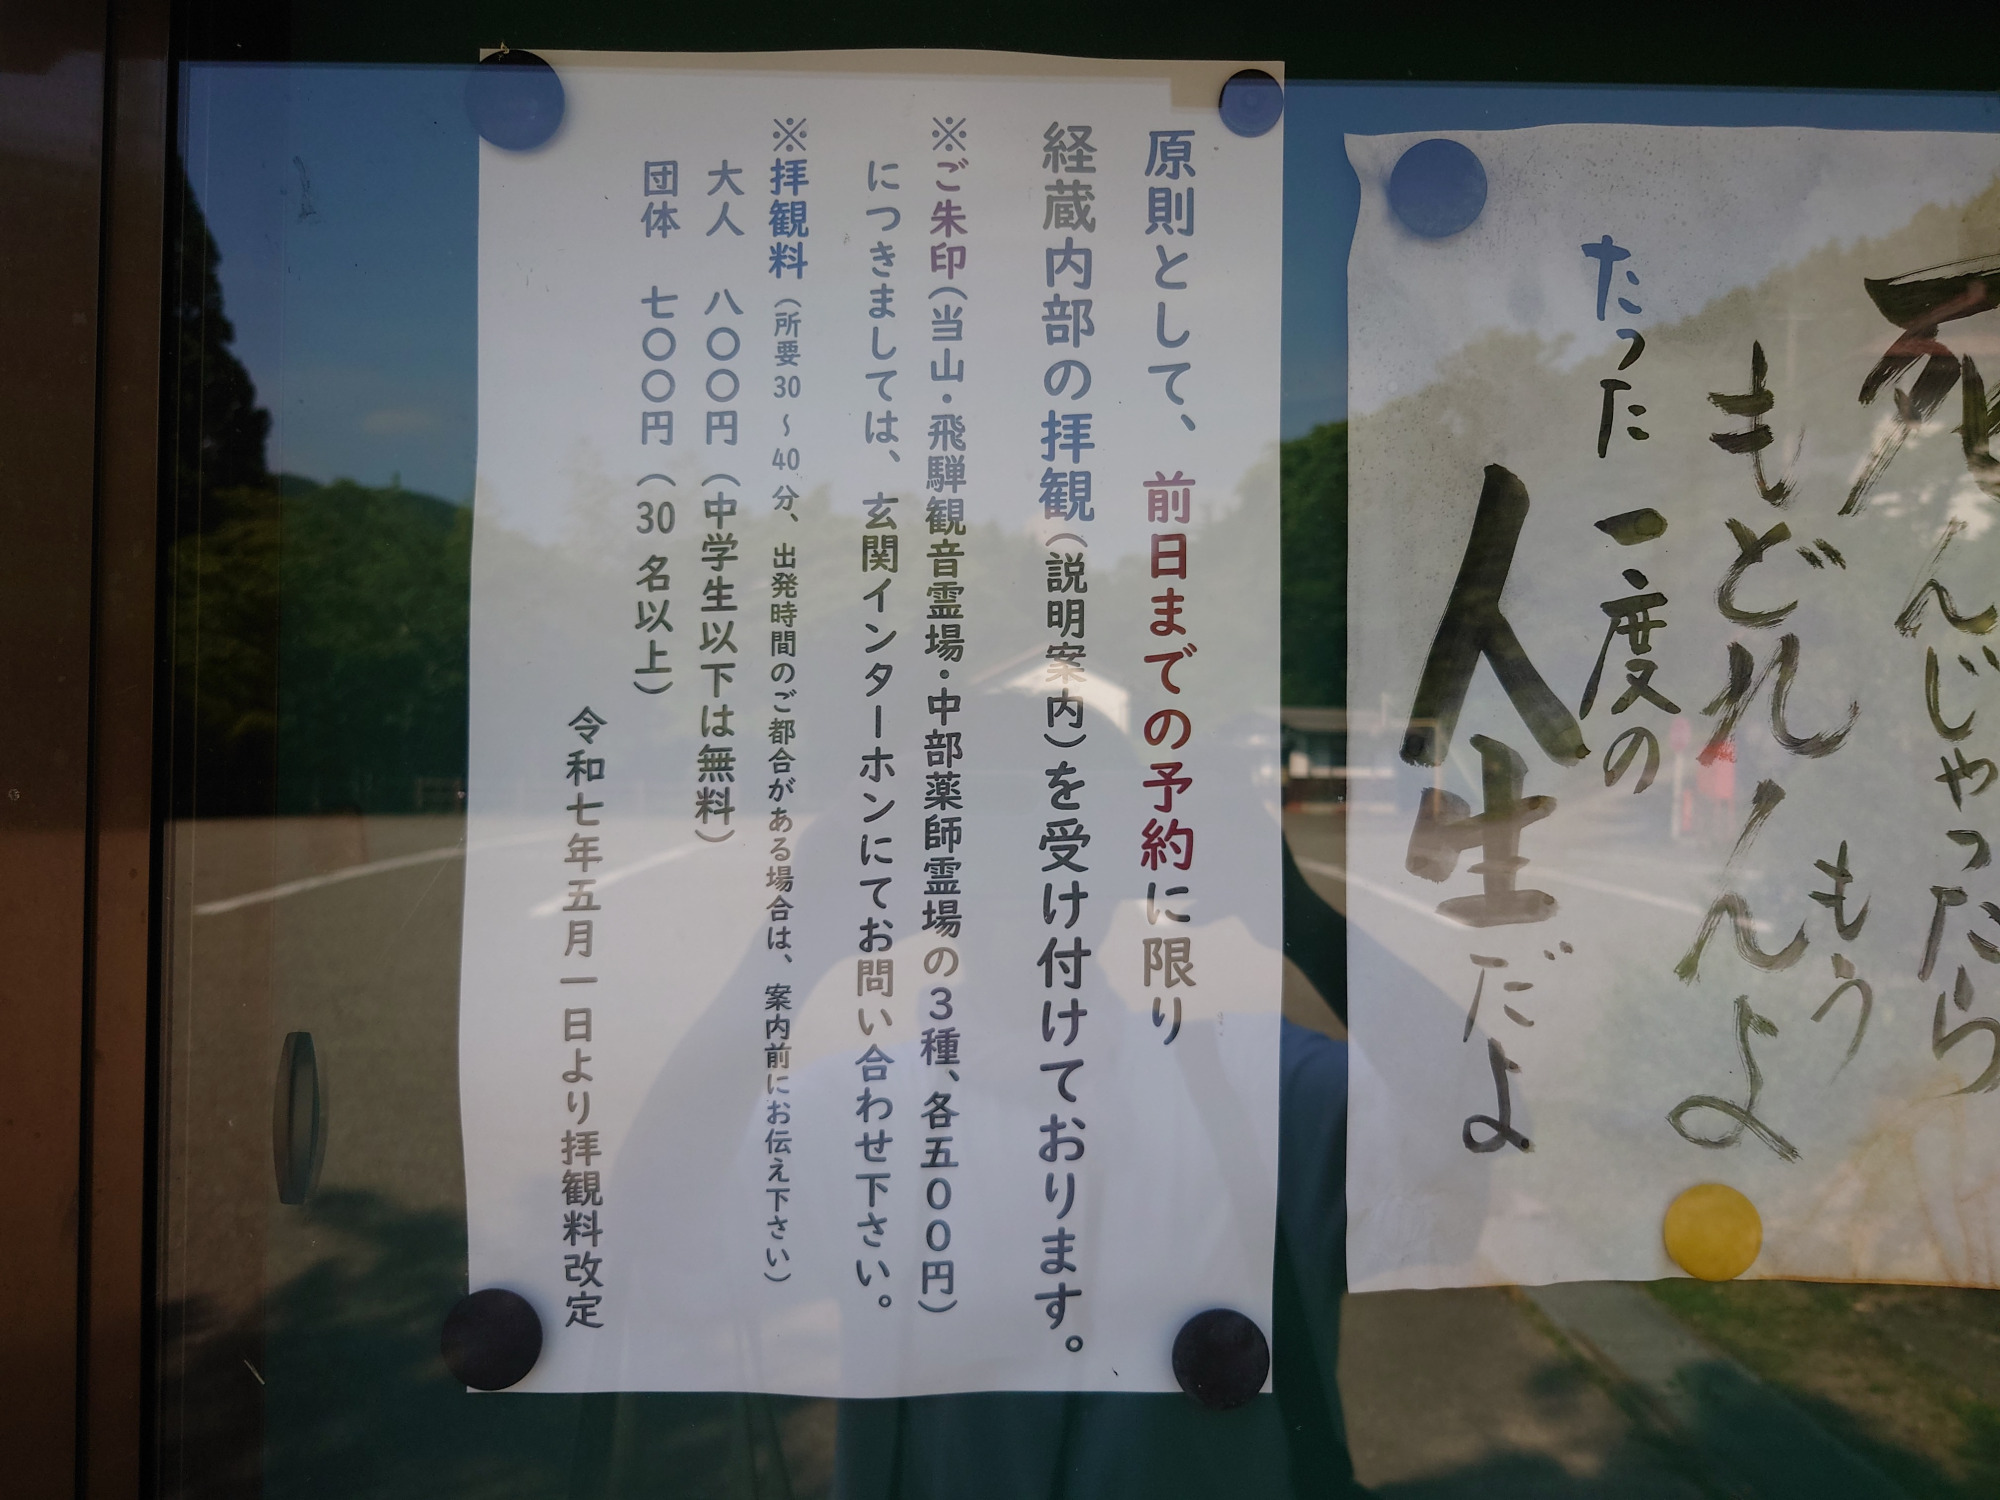 死んじゃったら
もう
もどれんよ
たった一度の
人生だよ
原則として、前日までの予約に限り
経蔵内部の拝観（説明案内）を受け付けております。
※ご朱印（当山・飛騨観音霊場・中部薬師霊場の３種、各五００円）
につきましては、玄関インターホンにてお問い合わせ下さい。
※拝観料（所要30～40分、出発時間のご都合がある場合は、案内前にお伝え下さい）
大人　八〇〇円（中学生以下は無料）
団体　七〇〇円（30名以上）
令和七年五月一日より拝観料改定